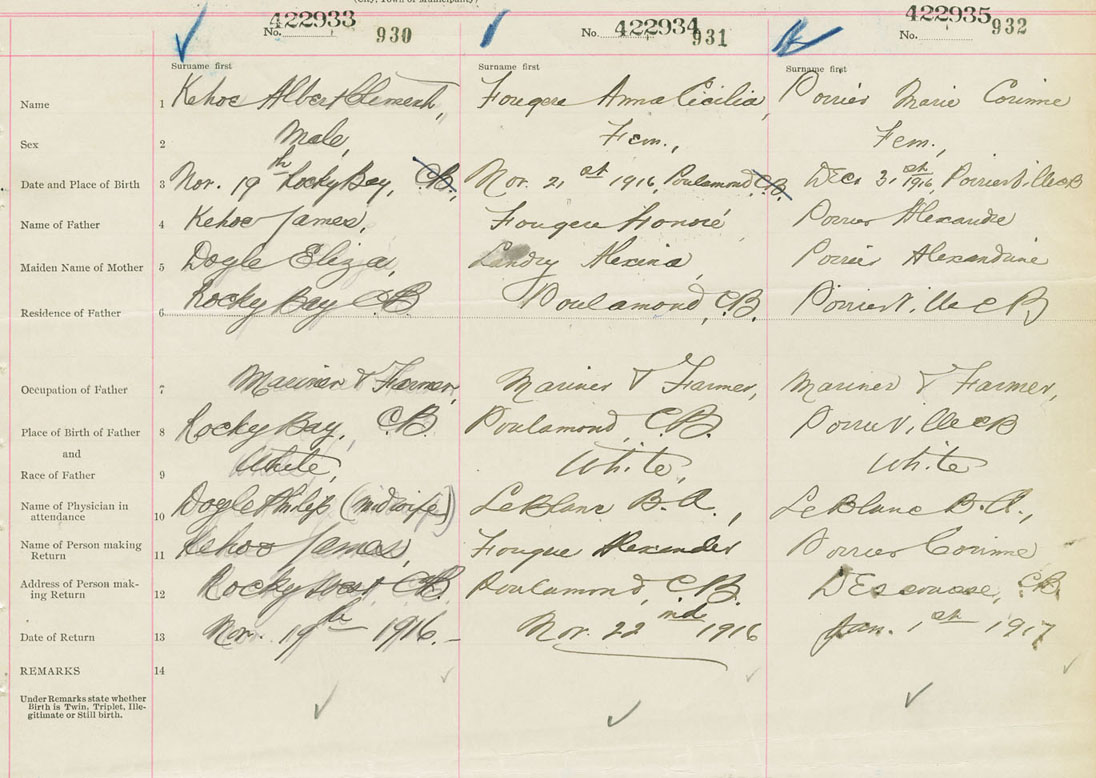 (City, Town or Municipality)
422933 422934 422935
No. 930 No. 931 No. 932
Surname first Surname first Surname first
Name 1 Kehoe Albert Clement, Fougere Anna Cicilia, Porrier Marie Corinne
Sex 2 Male, Fem., Fem.,
Date and Place of Birth 3 Nov. 19th Rocky Bay, C.B., Nov. 21st 1916, Poulamond C.B. Dec. 31st 1916, Porrierville CB
Name of Father 4 Kehoe James, Fougere Honoré, Porrier Alexandre
Maiden Name of Mother 5 Dogle Eliza, Landry Alexina, Porrier Alexandrine
Residence of Father 6 Rocky Bay C.B. Poulamond, C.B. Porrierville C B
Occupation of Father 7 Mariner & Farmer, Mariner & Farmer, Mariner & Farmer,
Place of Birth of Father 8 Rocky Bay, C.B. Poulamond, C.B. CB
and
Race of Father 9 White, White, White
Name of Physician in
attendance 10 Dogle Philip (midwife) LeBlanc B.A., LeBlanc B.A.,
Name of Person making
Return 11 Kehoe James, Fougere Alexander Porrier Corinne
Address of Person mak-
ing Return 12 Rocky C.B. Poulamond, C.B. D'Escousse, C.B.
Date of Return 13 Nov. 19th 1916. Nov. 22nd 1916 Jan. 1st 1917
REMARKS 14
Under Remarks state whether
Birth is Twin, Triplet, Ille-
gitimate or Still birth.